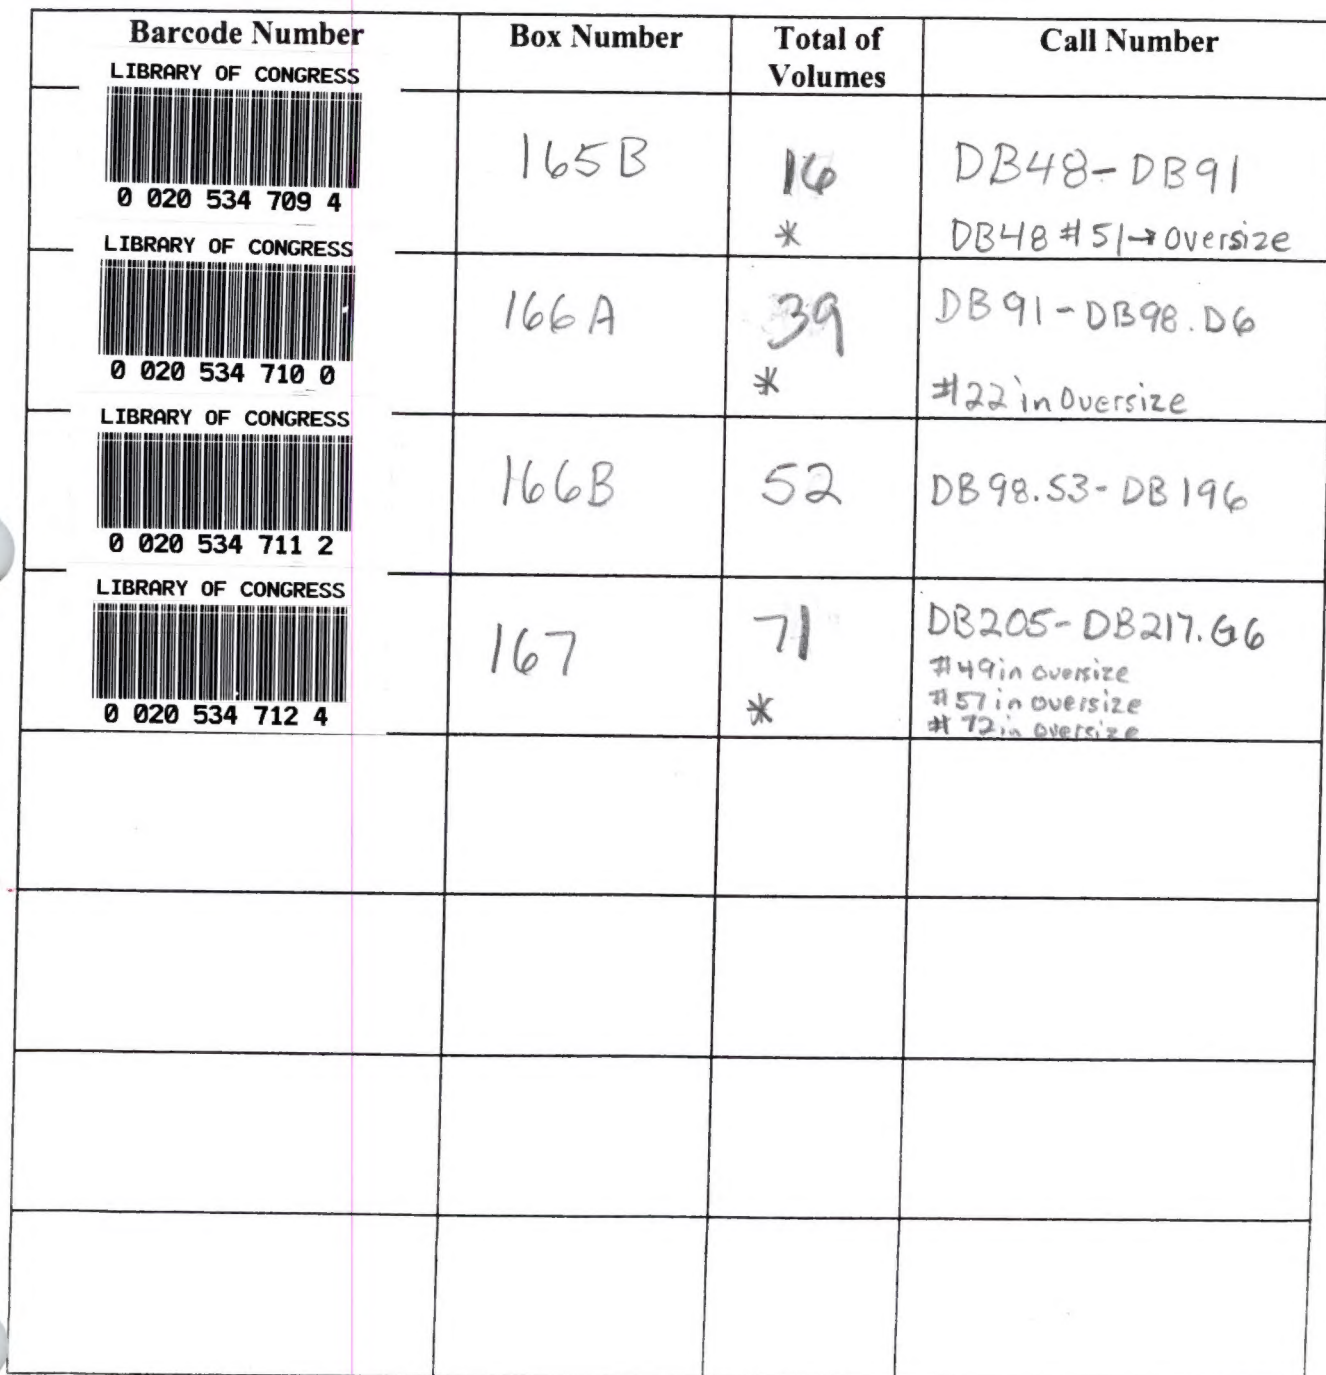 Barcode Number Box Number Total of Volumes Call Number
LIBRARY OF CONGRESS
0 020 534 709 4
165B
16
*
DB48-DB91
DB48 #51→Oversize
LIBRARY OF CONGRESS
0 020 534 710 0
166A
39
*
DB91-DB98.D6
#22 in Oversize
LIBRARY OF CONGRESS
0 020 534 711 2
166B
52
DB98.S3-DB196
LIBRARY OF CONGRESS
0 020 534 712 4
167
71
*
DB205-DB217.G6
#49 in oversize
#57 in oversize
#72 in oversize